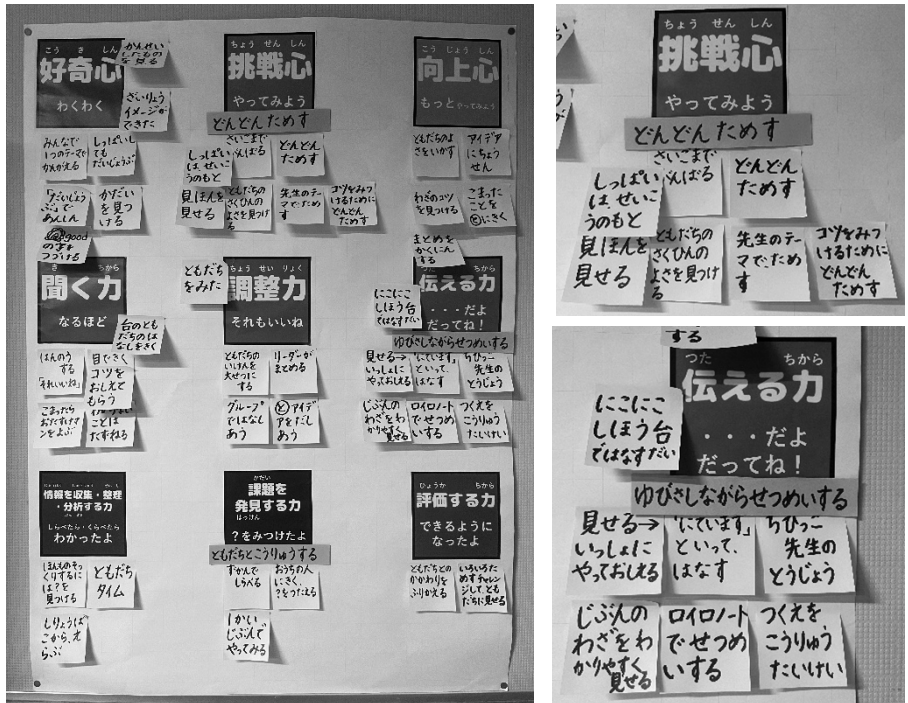 こう き しん
好奇心
わくわく
かんせい
したもの
を見る
ざいりょう
イメージが
できた
みんなで
1つのテーマで
かんがえる
しっぱいし
ても
だいじょうぶ
「だいじょう
ぶ」で
あんしん
かだい
を見つ
ける
good
のまま
つづける
ちょう せん しん
挑戦心
やってみよう
どんどんためす
しっぱい
は、せいこ
うのもと
さいごまで
がんばる
どんどん
ためす
見ほんを
見せる
ともだちの
さくひんの
よさを見つけ
る
先生のテー
マで、ため
す
コツをみつ
けるために
どんどん
ためす
こう じょう しん
向上心
もっとやってみよう
ともだちのよ
さをいかす
アイデア
にちょう
せん
わざのコツ
を見つける
こまった
ことを
とにきく
まとめを
かくにん
する
き ちから
聞く力
なるほど
台のとも
だちのはな
しをきく
はんのう
する
「それいいね」
目できく
コツを
おしえて
もらう
こまったら
おたすけマ
ンをよぶ
わからない
ことは
たずねる
ちょう せい りょく
調整力
それもいいね
ともだち
をみた
ともだちの
いけんを
大せつに
する
リーダーが
まとめる
グループ
ではなし
あう
とアイデ
アをだし
あう
つた ちから
伝える力
・・・だよ
だってね!
にこにこ
しほう台
ではなすだい
ゆびさしながらせつめいする
見せる→
いっしょに
やっておしえる
「にています」
といって、
はなす
ちびっこ
先生の
とうじょう
じぶんの
わざをわ
かりやすく
見せる
ロイロノート
でせつめ
いする
つくえを
こうりゅう
たいけい
情報を収集・整理
・分析する力
しらべたら・くらべたら
わかったよ
ほんものそっ
くりするに
は?を
見つける
ともだち
タイム
しりょうば
こから、え
らぶ
かだい
課題を
発見する力
はっけん
?をみつけたよ
ともだちとこうりゅうする
ずかんで
しらべる
おうちの人
にきく、
?をつたえる
1かい
じぶんで
やってみる
ひょうか ちから
評価する力
できるように
なったよ
ともだちとの
かかわりを
ふりかえる
いろいろた
めすチャレン
ジして、とも
だちに見せる
ちょう せん しん
挑戦心
やってみよう
どんどんためす
しっぱい
は、せいこ
うのもと
さいごまで
がんばる
どんどん
ためす
見ほんを
見せる
ともだちの
さくひんの
よさを見つけ
る
先生のテー
マで、ため
す
コツをみつ
けるために
どんどん
ためす
する
つた ちから
伝える力
・・・だよ
だってね!
にこにこ
しほう台
ではなすだい
ゆびさしながらせつめいする
見せる→
いっしょに
やっておしえる
「にています」
といって、
はなす
ちびっこ
先生の
とうじょう
じぶんの
わざをわ
かりやすく
見せる
ロイロノート
でせつめ
いする
つくえを
こうりゅう
たいけい